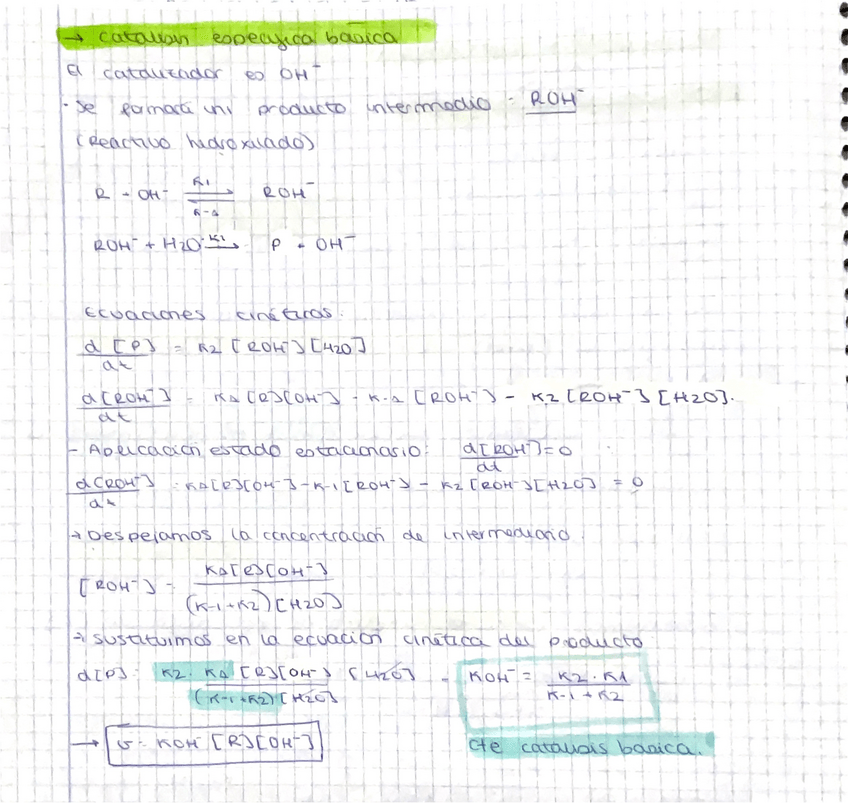 → catálisis específica básica
El catalizador es OH⁻
· Se formará un producto intermedio : ROH⁻
(Reactivo hidroxilado)
R + OH⁻ ⇌ ROH⁻ (K1 / K-1)
ROH⁻ + H2O —K2→ P + OH⁻
Ecuaciones cinéticas:
d[P]/dt = K2 [ROH⁻][H2O]
d[ROH⁻]/dt = K1[R][OH⁻] - K-1 [ROH⁻] - K2[ROH⁻][H2O].
- Aplicación estado estacionario: d[ROH⁻]/dt = 0
d[ROH⁻]/dt = K1[R][OH⁻] - K-1[ROH⁻] - K2[ROH⁻][H2O] = 0
→ Despejamos la concentración de intermediario
[ROH⁻] = K1[R][OH⁻] / (K-1+K2)[H2O]
→ sustituimos en la ecuación cinética del producto
d[P]: K2 · K1 [R][OH⁻] [H2O] / (K-1+K2)[H2O] - KOH⁻ = K2 · K1 / K-1 + K2
→ v = KOH⁻ [R][OH⁻]
cte catálisis básica.